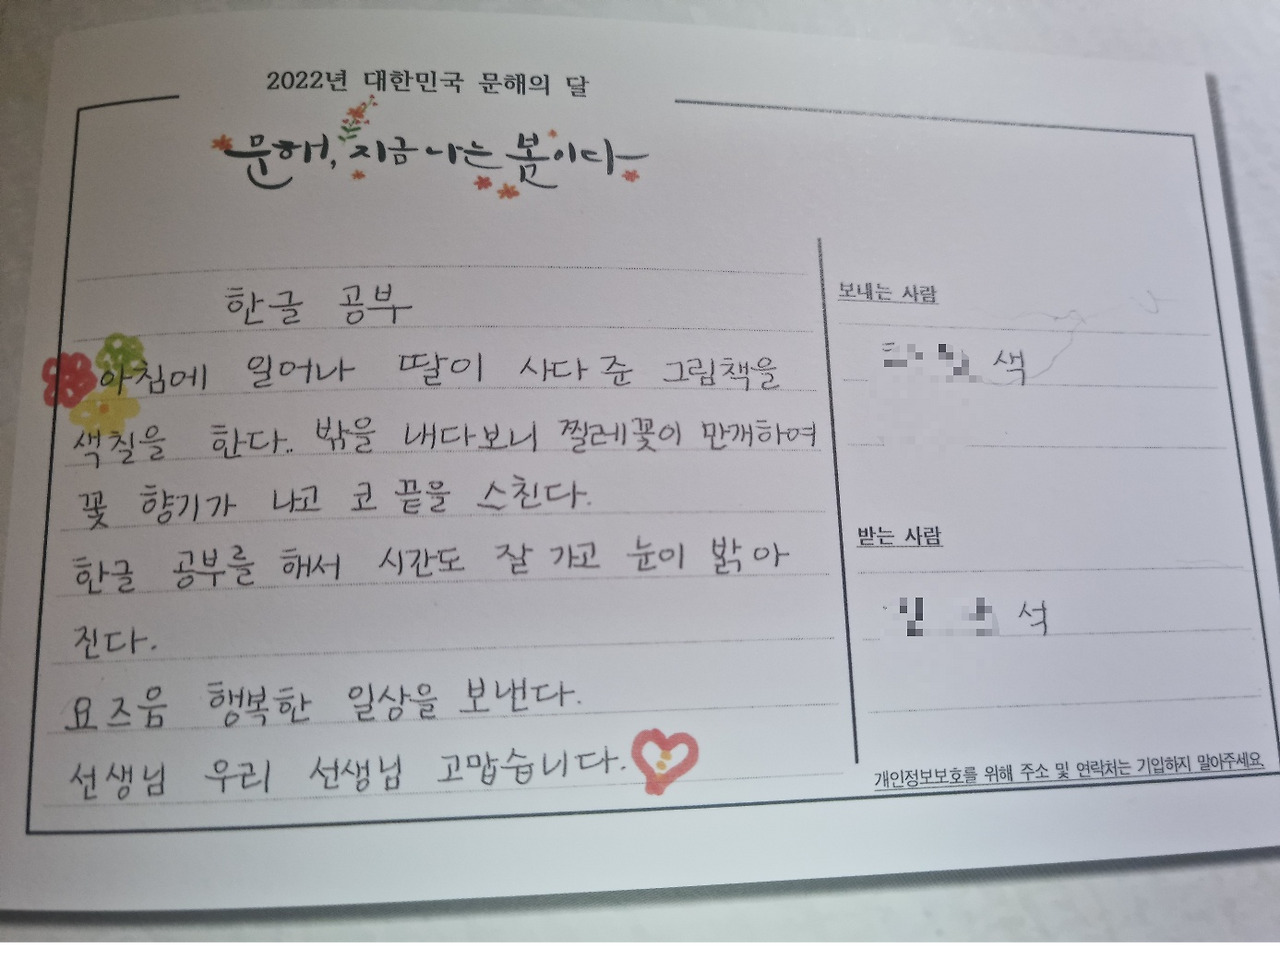 2022년 대한민국 문해의 달
문해, 지금 나는 봄이다
한글 공부
아침에 일어나 딸이 사다 준 그림책을
색칠을 한다.. 밖을 내다보니 찔레꽃이 만개하여
꽃 향기가 나고 코 끝을 스친다.
한글 공부를 해서 시간도 잘 가고 눈이 밝아
진다.
요즈움 행복한 일상을 보낸다.
선생님 우리 선생님 고맙습니다.
보내는 사람
색
받는 사람
석
개인정보보호를 위해 주소 및 연락처는 기입하지 말아주세요.